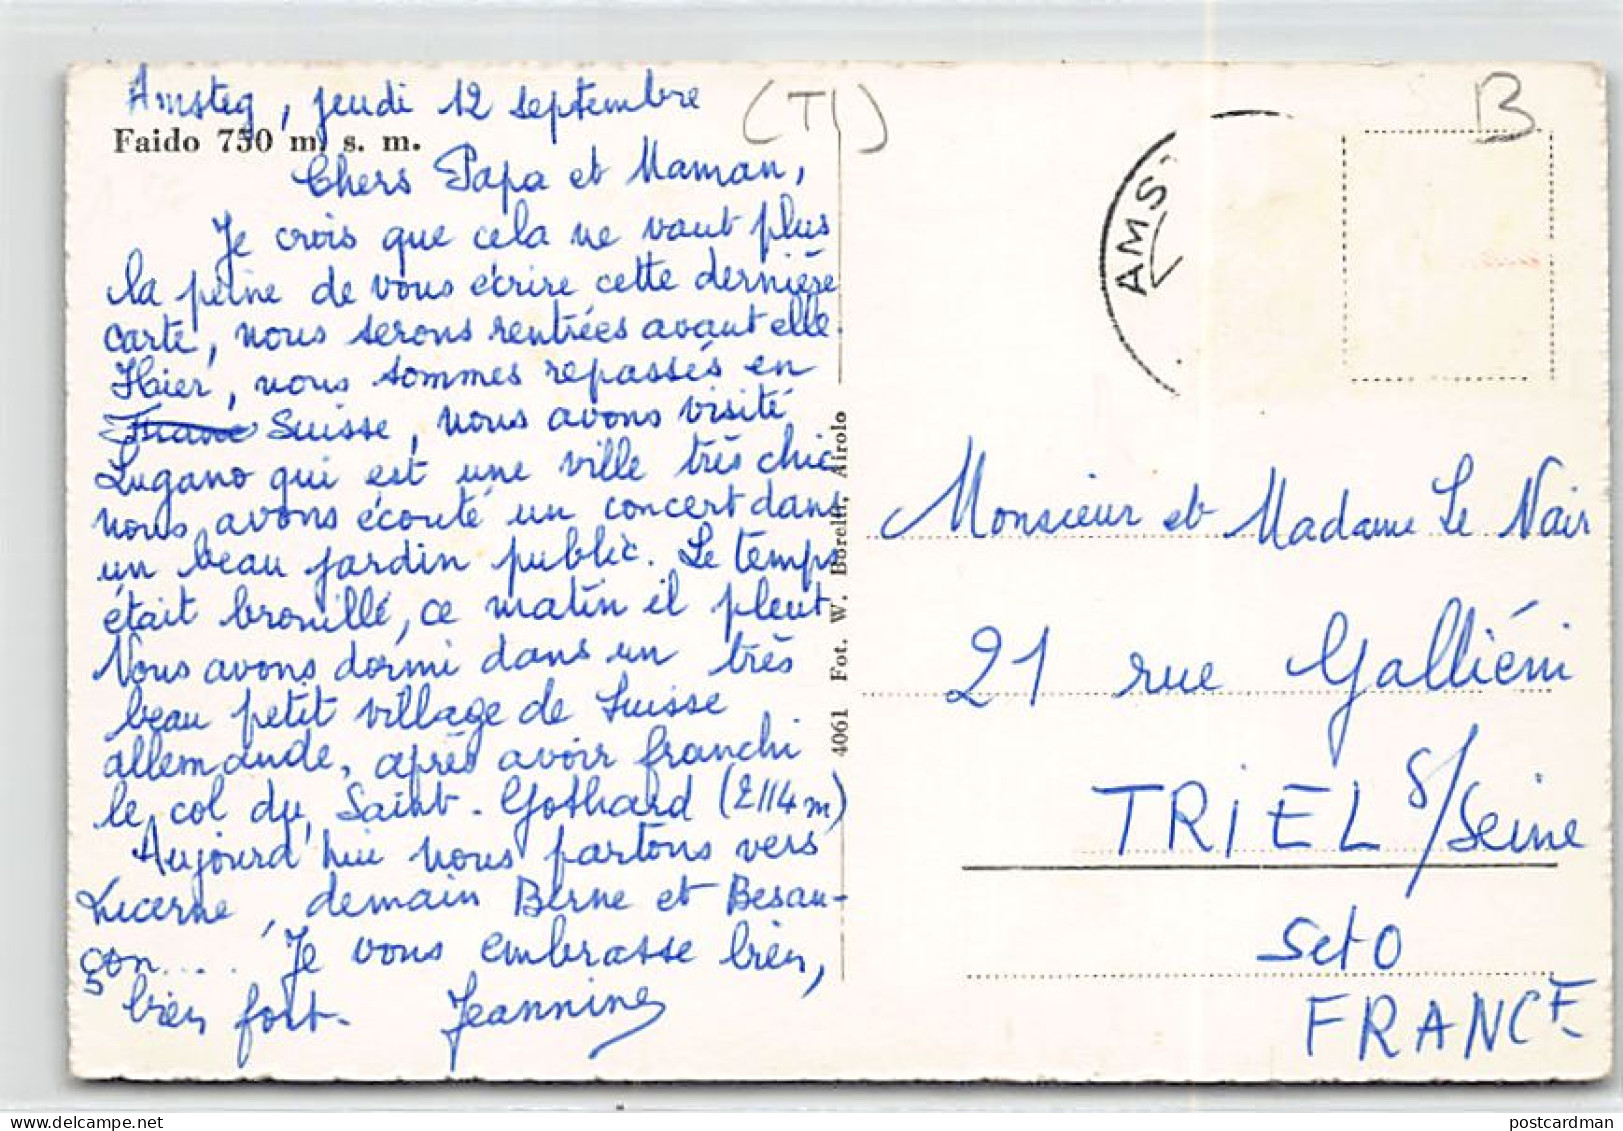 Amsteg, jeudi 12 septembre
Faido 750 m. s. m.
Chers Papa et Maman,
Je crois que cela ne vaut plus
la peine de vous écrire cette dernière
carte, nous serons rentrées avant elle.
Hier, nous sommes repassés en
France Suisse, nous avons visité
Lugano qui est une ville très chic
nous avons écouté un concert dans
un beau jardin public. Le temps
était brouillé, ce matin il pleut
Nous avons dormi dans un très
beau petit village de Suisse
allemande, après avoir franchi
le col du Saint-Gothard (2114 m)
Aujourd'hui nous partons vers
Lucerne, demain Berne et Besan-
çon.... Je vous embrasse bien,
bien fort. Jeannine
4061 Fot. W. Borelli, Airolo
(TI)
B
AMS
Monsieur et Madame Le Nair
21 rue Galliéni
TRIEL s/Seine
Set O
FRANCE
postcardman